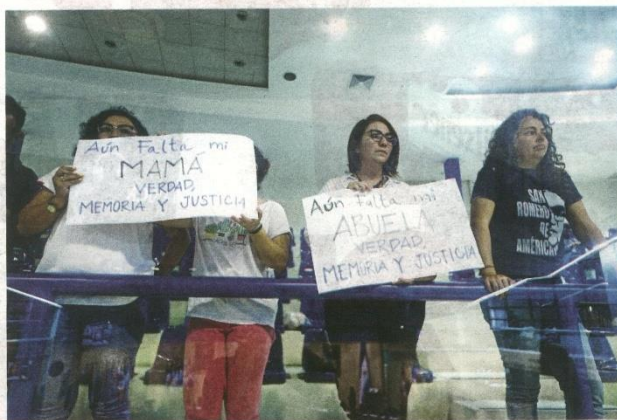 Aún Falta mi
MAMÁ
VERDAD,
MEMORIA Y JUSTICIA
Aún Falta mi
ABUELA
VERDAD,
MEMORIA Y JUSTICIA
SAN
ROMERO
DE
AMÉRICA